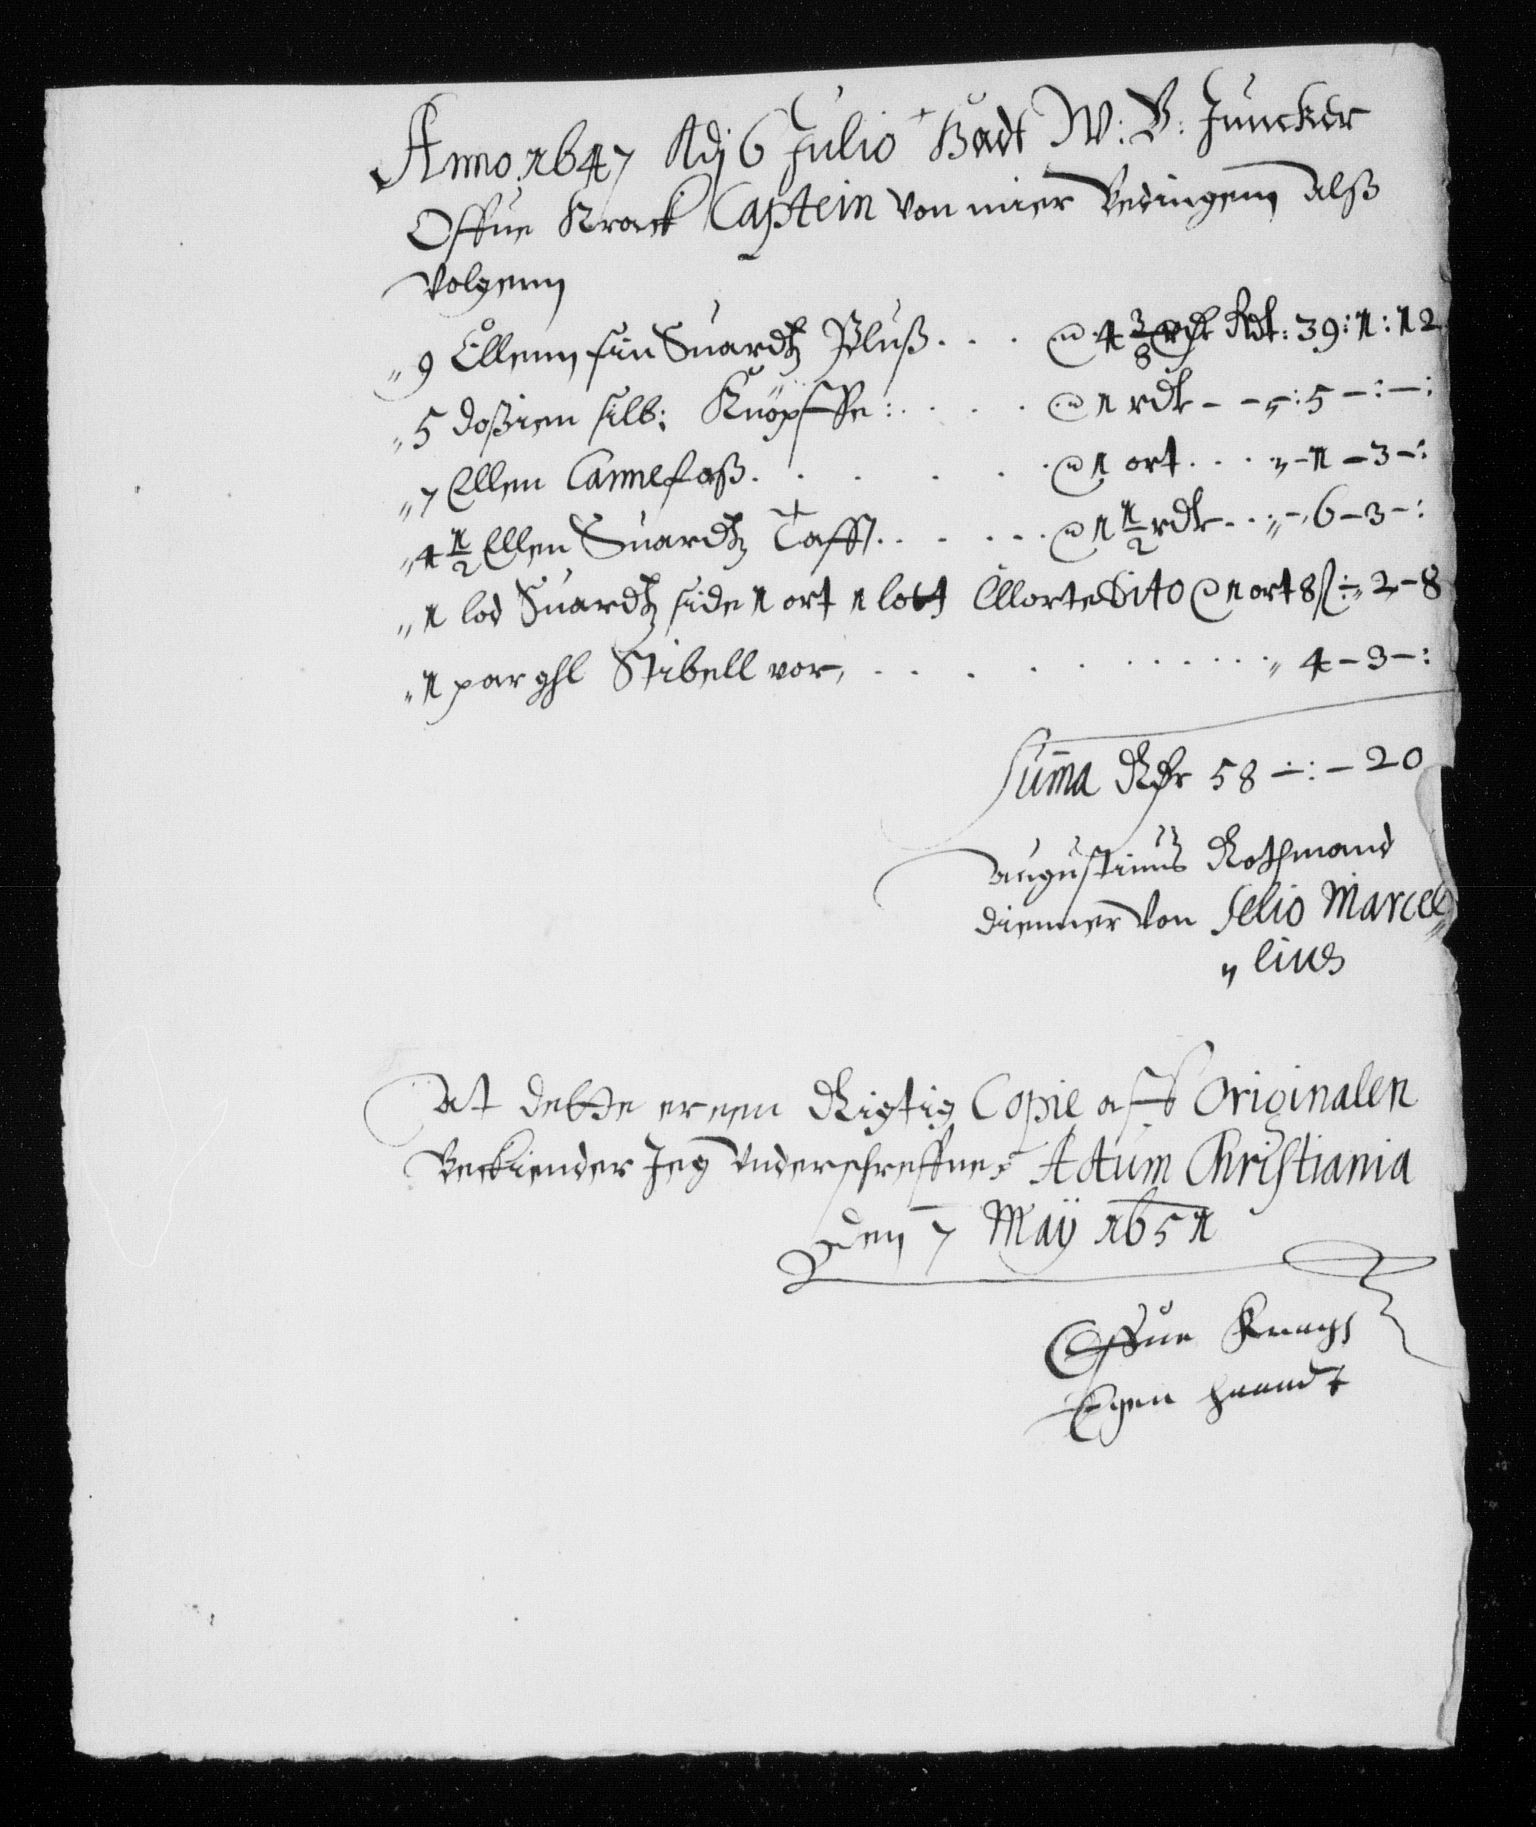 Anno 1647 Adj 6 Julio Hadt W: B: Juncker
Offue Krack Captein von mier Bedingenn alß
volgenn
„ 9 Ellenn fin Suardtz Pluß . . . @ 4 3/8 Rdr Rdt: 39:1:12
„ 5 doßien silb: Knöpffe : . . . . @ 1 rdr - - „: 5 -:-:
„ 7 Ellen Cannefaß . . . . . . @ 1 ort . . . „ - 1 - 3 -:
„ 4 1/2 Ellen Suardtz Tafft . . . . . . @ 1 1/2 rdr . . „ -, 6 - 3 -:
„ 1 lod Suardtz side 1 ort 1 lott Couleurte Dito @ 1 ort 8 ß ÷ „ 2 - 8
„ 1 par ghl Stibell vor, . . . . . . . . . . „ 4 - 3 -:
Suma Rdr 58 -:- 20
Augustinus Rothmand
dienner von Selio Marcel„
„ lius
At dette er een Rigtig Copie aff Originalen
Beckiender Jeg underschreffne, Actum Christiania
Den 7 Maÿ 1651
Offue Kragh
Egen haandt